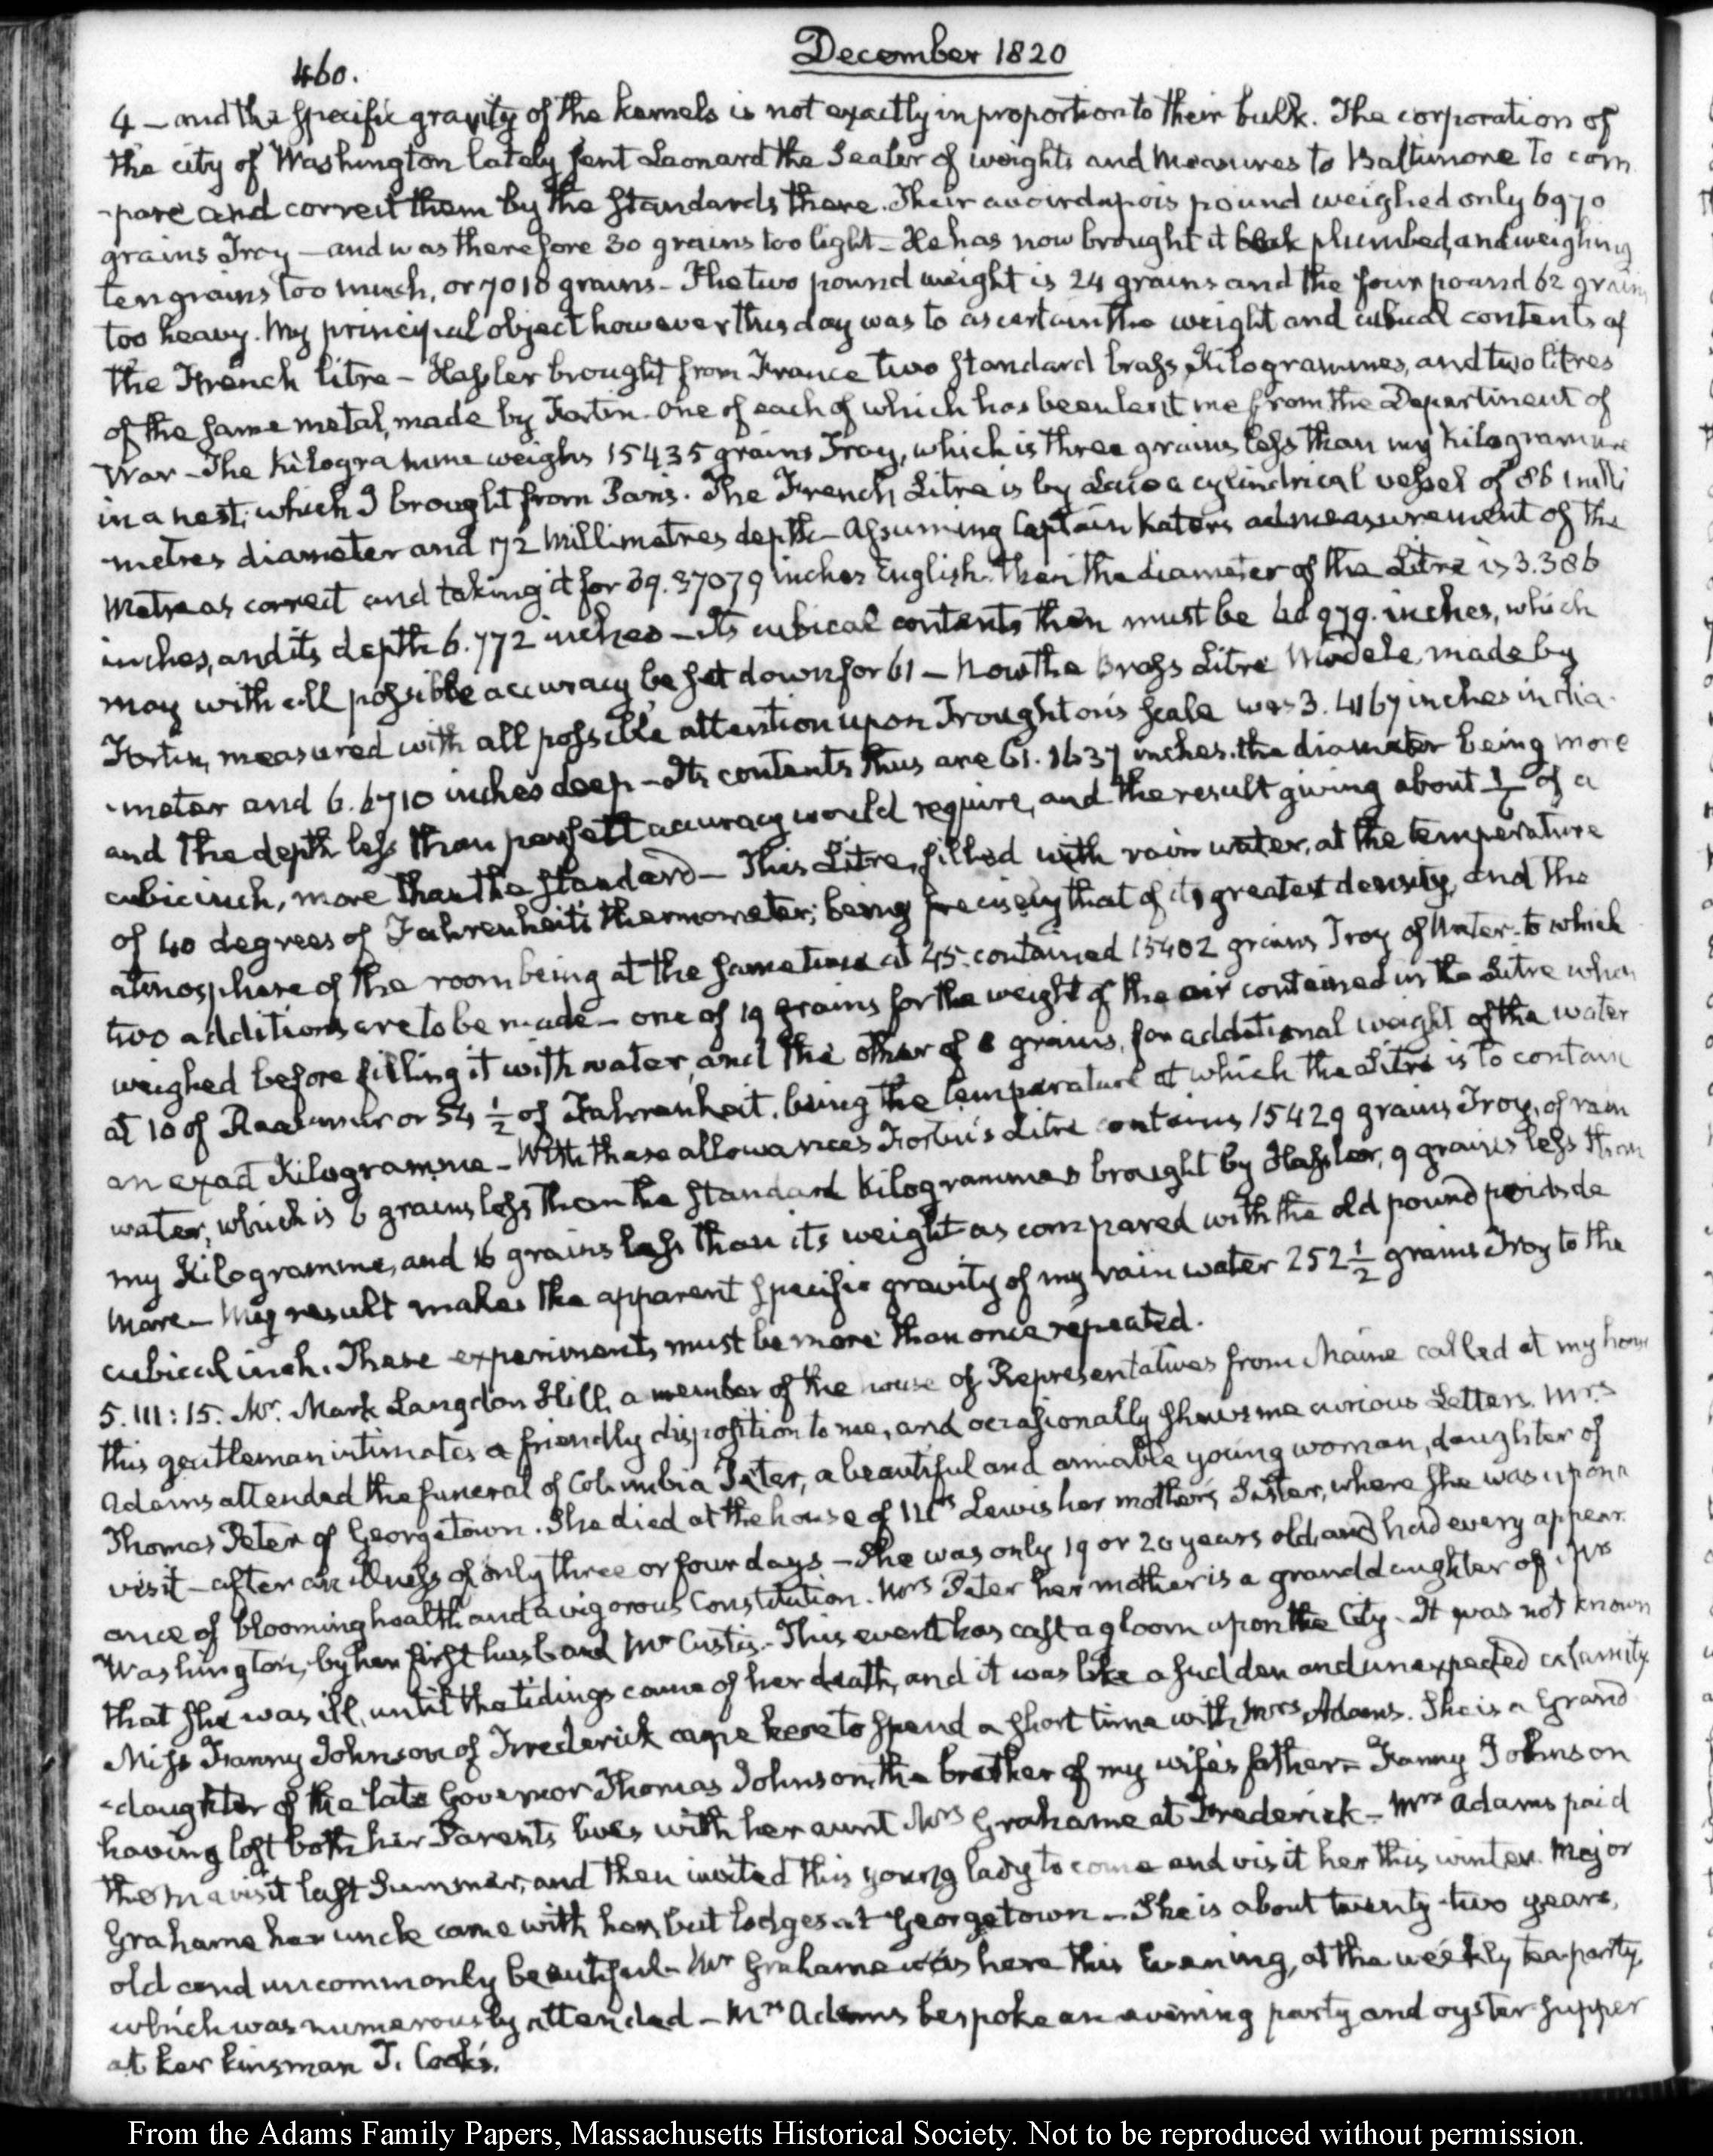 December 1820
460.
4 – and the specific gravity of the kernels is not exactly in proportion to their bulk. The corporation of
the city of Washington lately sent Leonard the Sealer of weights and measures to Baltimore to com
-pare and correct them by the standards there. Their avoirdupois pound weighed only 6970
grains Troy – and was therefore 30 grains too light – He has now brought it back plumbed, and weighing
ten grains too much, or 7010 grains – The two pound weight is 24 grains and the four pound 62 grains
too heavy. My principal object however this day was to ascertain the weight and cubical contents of
the French litre – Hassler brought from France two standard brass Kilogrammes, and two litres
of the same metal, made by Fortin – One of each of which has been lent me from the Department of
War – The Kilogramme weighs 15435 grains Troy, which is three grains less than my Kilogramme
in a nest, which I brought from Paris. The French Litre is by Law a cylindrical vessel of 86 milli
-metres diameter and 172 Millimetres depth – Assuming Captain Katers admeasurement of the
Metre as correct and taking it for 39.37079 inches English. then the diameter of the Litre is 3.386
inches, and its depth 6.772 inches – Its cubical contents then must be 60.979. inches, which
may with all possible accuracy be set down for 61 – Now the Brass Litre Modele, made by
Fortin, measured with all possible attention upon Troughton's scale was 3.4167 inches in dia.
-meter and 6.6710 inches deep – Its contents thus are 61.1637 inches. the diameter being more
and the depth less than perfect accuracy would require, and the result giving about 1/6 of a
cubic inch, more than the standard – This Litre, filled with rain water, at the temperature
of 40 degrees of Fahrenheit's thermometer; being precisely that of its greatest density, and the
atmosphere of the room being at the same time at 45. contained 15402 grains Troy of Water – to which
two additions are to be made – one of 19 grains for the weight of the air contained in the Litre when
weighed before filling it with water, and the other of 8 grains, for additional weight of the water
at 10 of Reaumur or 54 1/2 of Fahrenheit. being the temperature at which the Litre is to contain
an exact Kilogramme – With these allowances Fortin's Litre contains 15429 grains Troy, of rain
water, which is 6 grains less than the standard Kilogrammes brought by Hassler, 9 grains less than
my Kilogramme, and 16 grains less than its weight as compared with the old pound poids de
Marc – My result makes the apparent specific gravity of my rain water 252 1/2 grains Troy to the
cubical inch. These experiments must be more than once repeated.
5. III: 15. Mr. Mark Langdon Hill, a member of the house of Representatives from Maine called at my house
this gentleman intimates a friendly disposition to me, and occasionally shews me curious Letters. Mrs
Adams attended the funeral of Columbia Peter, a beautiful and amiable young woman, daughter of
Thomas Peter of Georgetown. She died at the house of Mrs Lewis her mother's Sister, where she was upon a
visit – after an illness of only three or four days – She was only 19 or 20 years old, and had every appear.
ance of blooming health and a vigorous Constitution. Mrs Peter her mother is a granddaughter of Mrs
Washington, by her first husband Mr Custis. – This event has cast a gloom upon the City – It was not known
that she was ill, until the tidings came of her death, and it was like a sudden and unexpected calamity.
Miss Fanny Johnson of Frederick came here to spend a short time with Mrs Adams. She is a Grand
-daughter of the late Governor Thomas Johnson, the brother of my wife's father – Fanny Johnson
having lost both her Parents lives with her aunt Mrs Grahame at Frederick – Mrs Adams paid
them a visit last Summer, and then invited this young lady to come and visit her this winter. Major
Grahame her uncle came with her, but lodges at Georgetown – She is about twenty-two years,
old and uncommonly beautiful – Mr Grahame was here this Evening, at the weekly tea-party
which was numerously attended – Mrs Adams bespoke an evening party and oyster supper
at her kinsman J. Cook's.
From the Adams Family Papers, Massachusetts Historical Society. Not to be reproduced without permission.